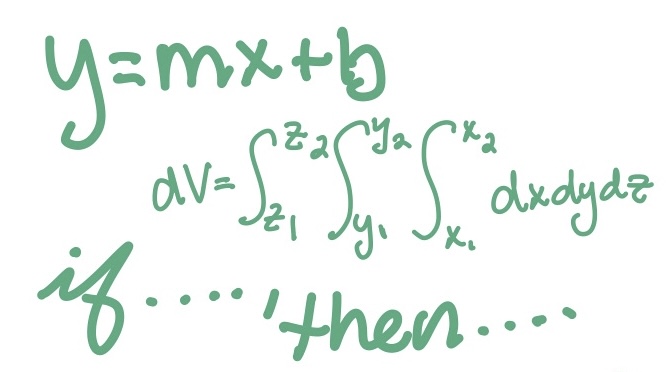 y=mx+b
dV=∫z₁z₂∫y₁y₂∫x₁x₂ dxdydz
if...., then....